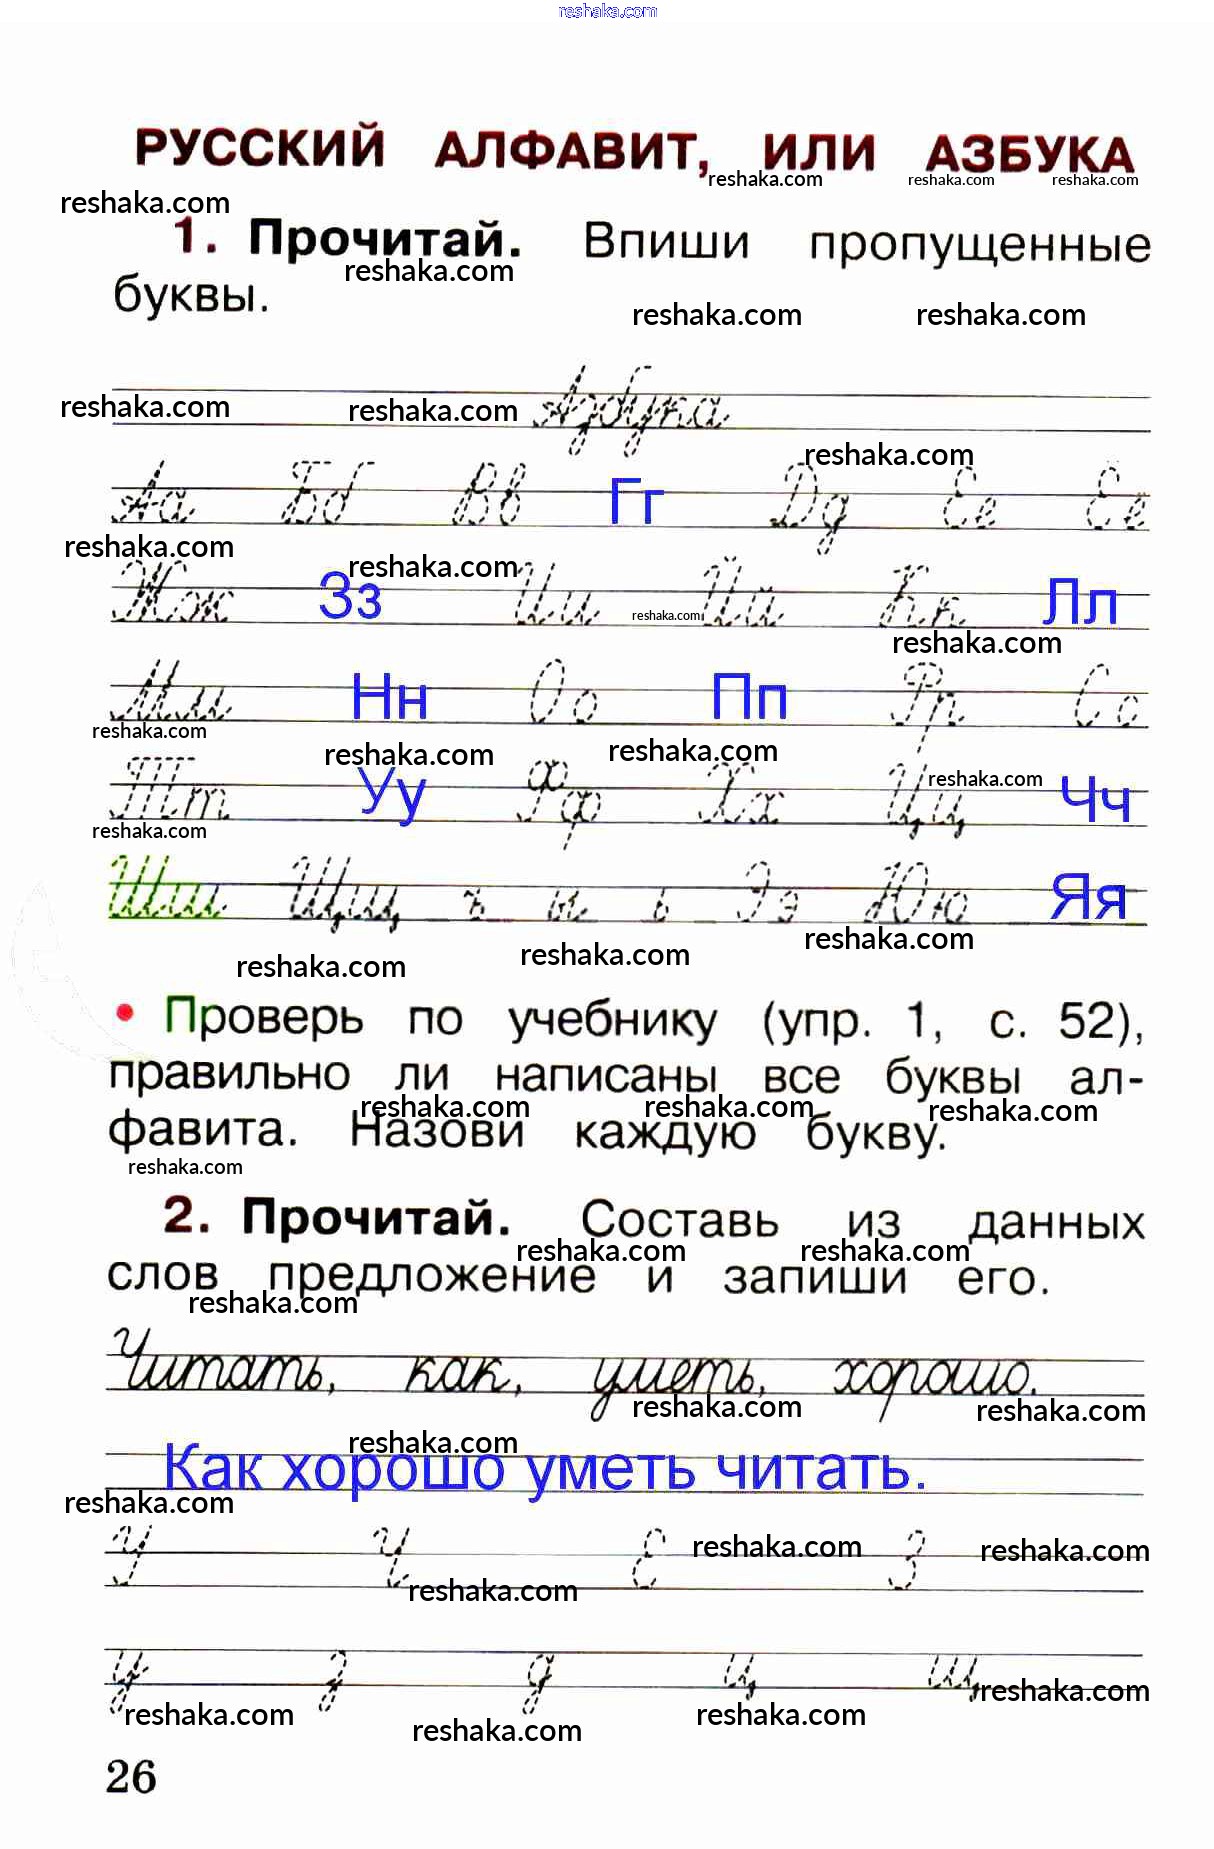 reshaka.com
РУССКИЙ АЛФАВИТ, ИЛИ АЗБУКА
reshaka.com reshaka.com reshaka.com
reshaka.com
1. Прочитай. Впиши пропущенные
reshaka.com
буквы.
reshaka.com reshaka.com
Азбука
reshaka.com reshaka.com
reshaka.com
Аа Бб Вв Гг Дд Ее Ёё
reshaka.com reshaka.com
Жж Зз Ии Йй Кк Лл
reshaka.com
reshaka.com
Мм Нн Оо Пп Рр Сс
reshaka.com reshaka.com reshaka.com
Тт Уу Фф Хх Цц Чч
reshaka.com
reshaka.com
Шш Щщ ъ ы ь Ээ Юю Яя
reshaka.com reshaka.com reshaka.com
• Проверь по учебнику (упр. 1, с. 52),
правильно ли написаны все буквы ал-
reshaka.com reshaka.com reshaka.com
фавита. Назови каждую букву.
reshaka.com
2. Прочитай. Составь из данных
reshaka.com reshaka.com
слов предложение и запиши его.
reshaka.com
Читать, как, уметь, хорошо.
reshaka.com reshaka.com
reshaka.com
Как хорошо уметь читать.
reshaka.com
У Ч Е З
reshaka.com reshaka.com
reshaka.com
у з д ц щ
reshaka.com
reshaka.com reshaka.com reshaka.com
26